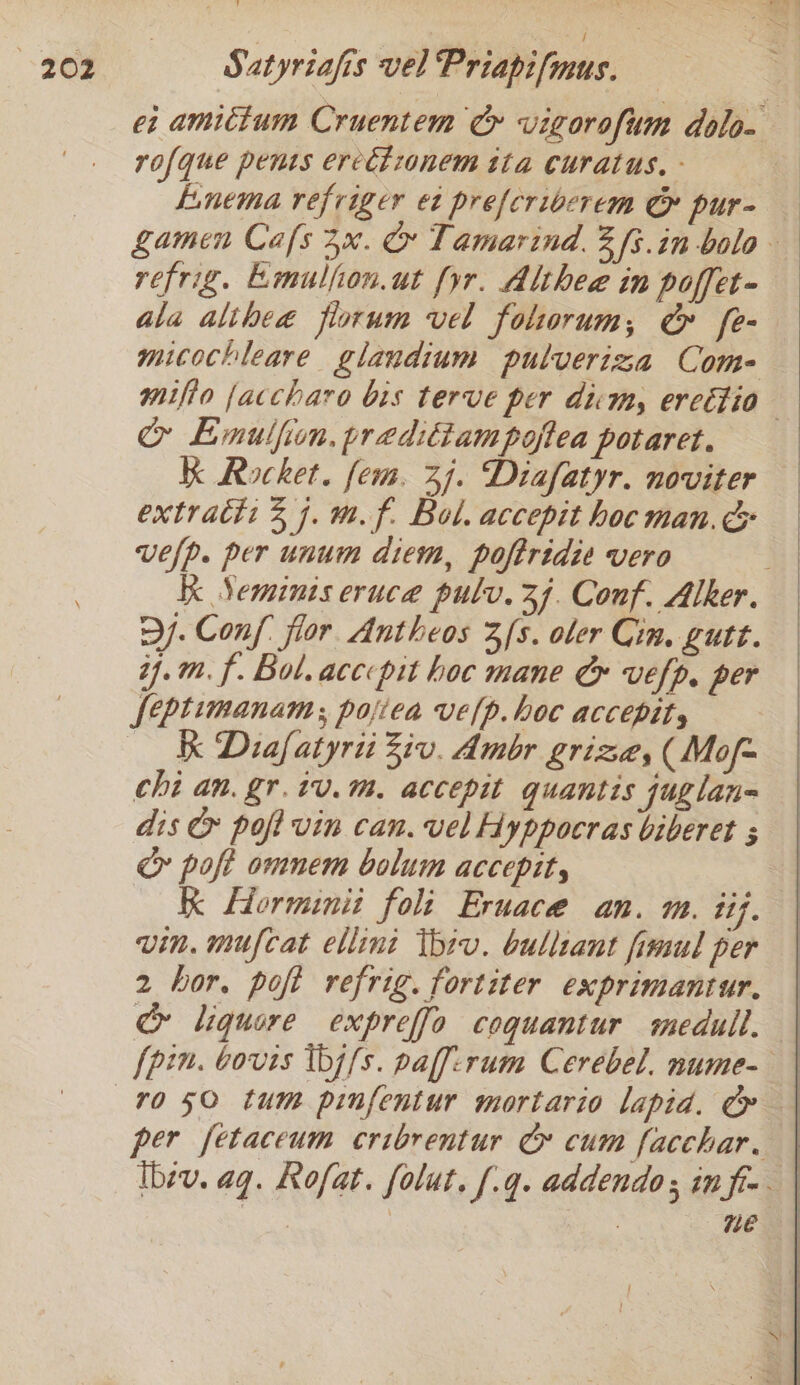 202 Satyriaſis vel Priapiſmus.
ei amictum Cruentem & vigoroſum dolo-
roſque penis erectionem ita curatus.
Enema refriger ei preſcriberem & pur-
gamen Caſs ʒx. & Tamarind. ℥ſs. in bolo
refrig. Emulſion. ut ſyr. Altheæ in poſſet-
ala altheæ florum vel foliorum; & ſe-
micochleare glandium pulveriza Com-
miſto ſaccharo bis terve per diem, erectio
& Emulſion. prædictam poſtea potaret.
℞ Rocket. ſem. ʒj. Diaſatyr. noviter
extracti ℥j. m. f. Bol. accepit hoc man. &
veſp. per unum diem, poſtridie vero
℞ Seminis erucæ pulv. ʒj. Conf. Alker.
℈j. Conſ. flor. Antheos ʒſs. oler Cin. gutt.
ij. m. f. Bol. accepit hoc mane & veſp. per
ſeptimanam; poſtea veſp. hoc accepit,
℞ Diaſatyrii ℥iv. Ambr grizæ, (Moſ-
chi an. gr. iv. m. accepit quantis juglan-
dis & poſt vin can. vel Hyppocras biberet;
& poſt omnem bolum accepit,
℞ Horminii foli Eruacæ an. m. iij.
vin. muſcat ellini ℔iv. bulliant ſimul per
2 hor. poſt refrig. fortiter exprimantur.
& liquore expreſſo coquantur medull.
ſpin. bovis ℔jſs. paſſerum Cerebel. nume-
ro 50 tum pinſentur mortario lapid. &
per ſetaceum cribrentur & cum ſacchar.
℔iv. aq. Roſat. ſolut. ſ.q. addendo; in fi-
ne